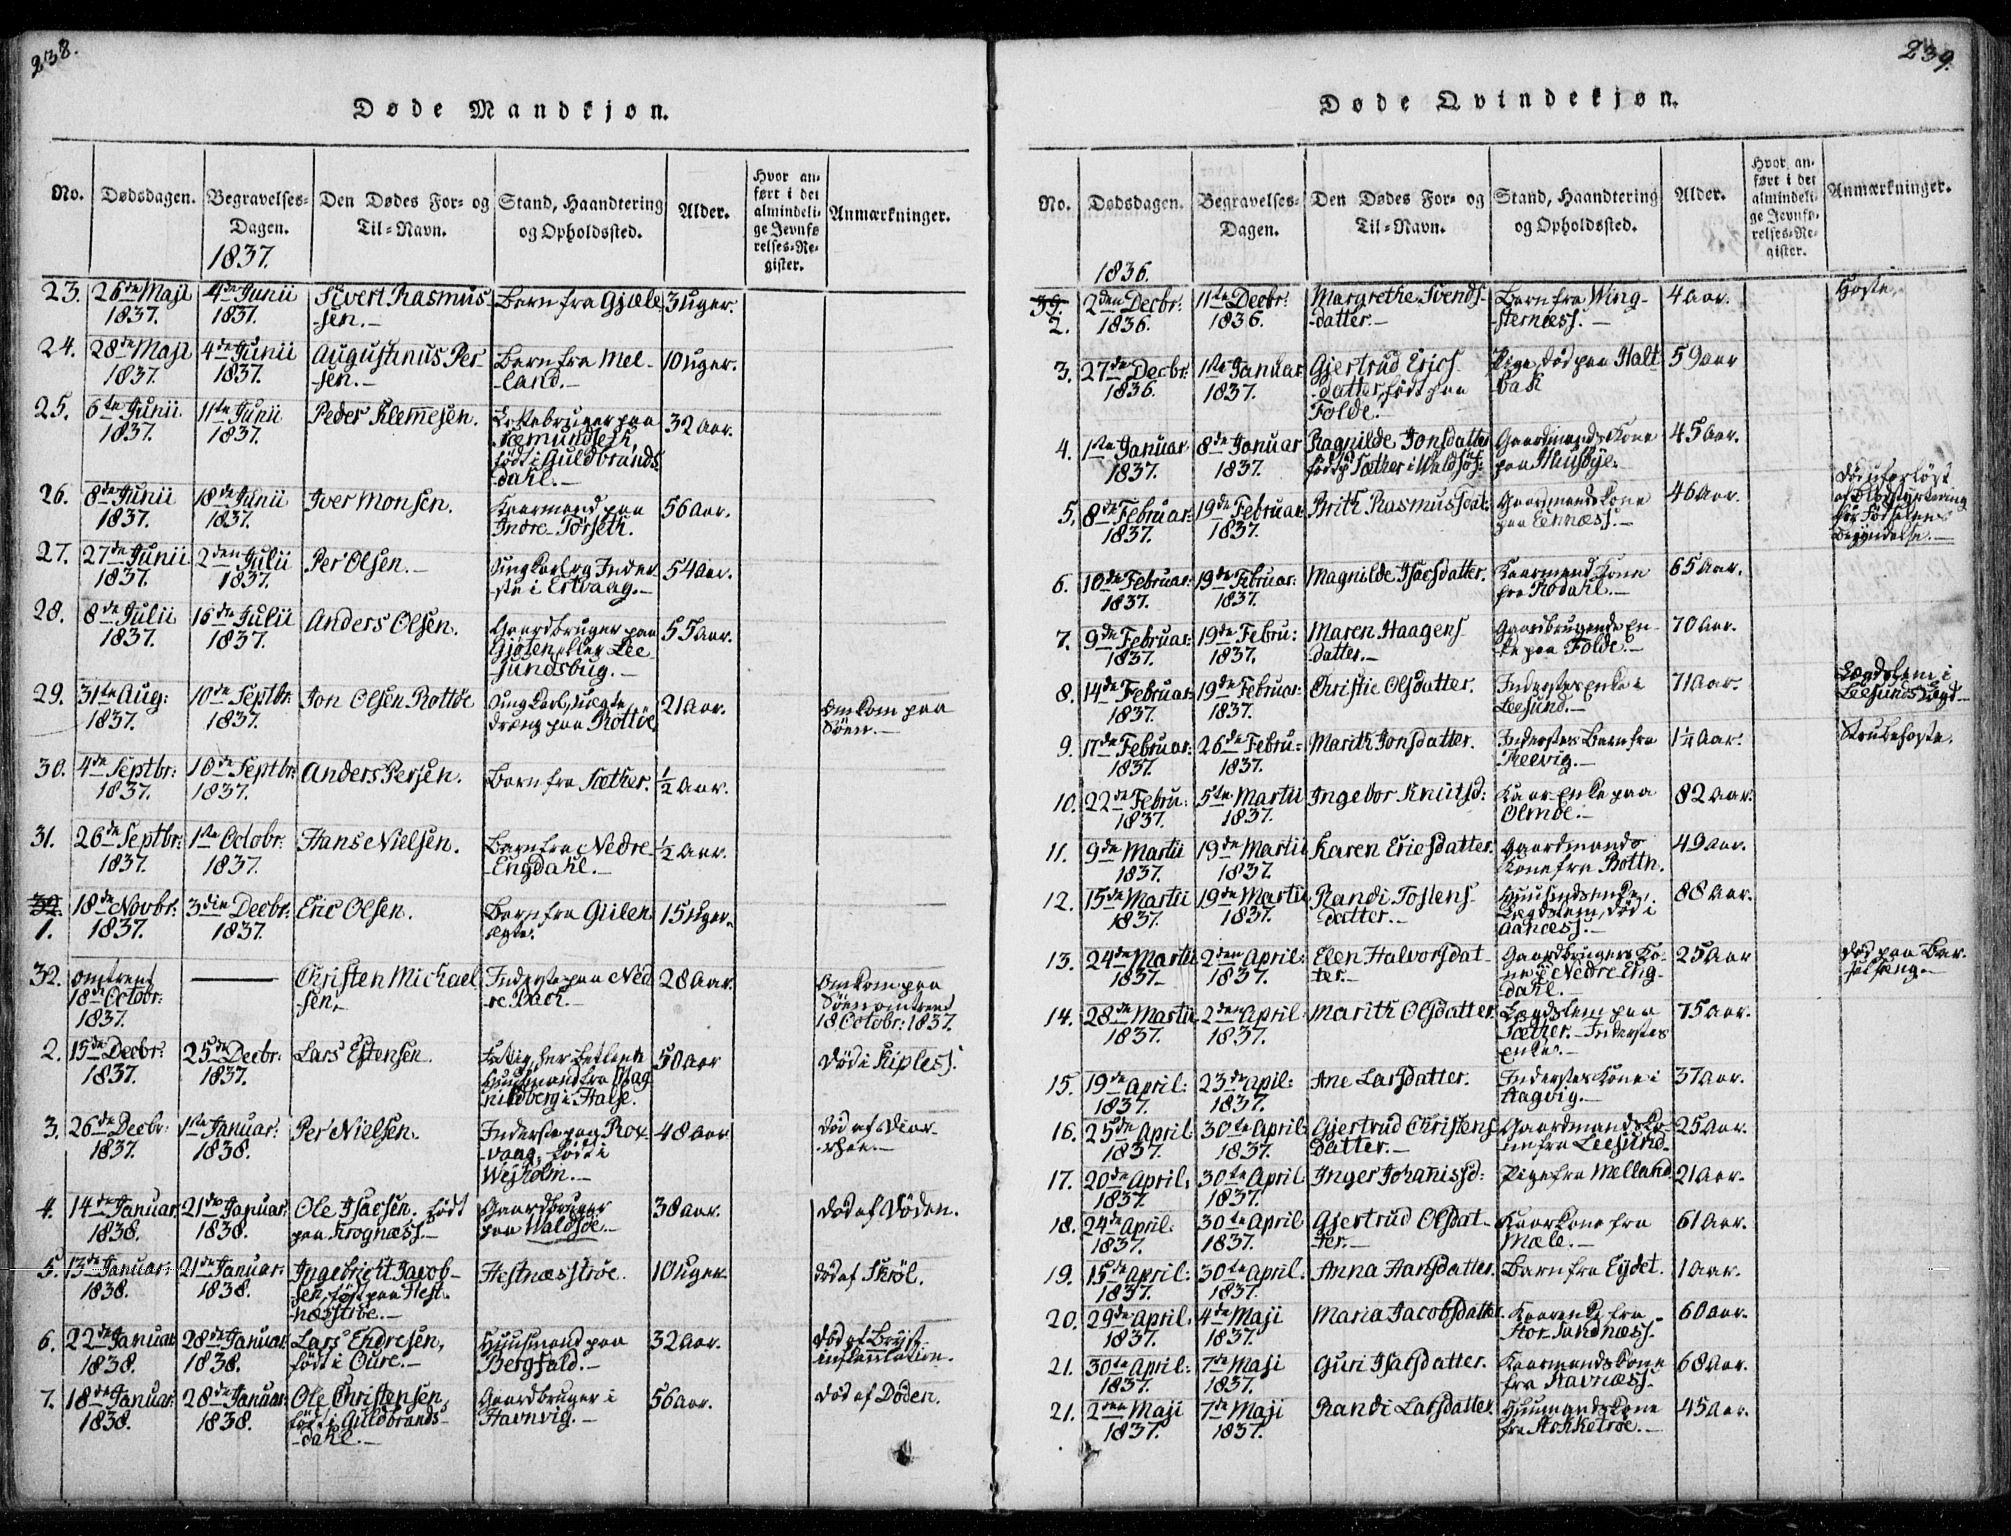 238.
Døde Mandkjøn.
No. Dødsdagen. Begravelses-Dagen. Den Dødes For- og Til-Navn. Stand, Haandtering og Opholdssted. Alder. Hvor anført i det almindelige Jevnførelses-Register. Anmærkninger.
1837.
23. 26de Maji 4de Junii Sivert Rasmus Barn fra Gjæle 3 uger.
1837. 1837. -sen.-
24. 28de Maji 4de Junii Augustinus Per- Barn fra Mel- 10 uger.
1837. 1837. -sen.- -land.-
25. 6te Junii 11te Junii Peder Klemmesen. 32 Aar.
1837. 1837.
født i Guldbrands
dahl.-
26. 8de Junii 18de Junii Iver Monsen. Kaarmand paa 56 Aar.
1837. 1837. Indre Torseth.
27. 27de Junii 2den Julii Per Olsen.- Ungkarl og Inder 54 Aar.
1837. 1837. -ste i Ertvaag.-
28. 8de Julii 16de Julii Anders Olsen. Gaardbruger paa 55 Aar.
1837. 1837. Gjøten eller Lee
-sundsbug.-
29. 31te Aug: 10de Septbr: Jon Olsen Rottøe Ungkarl, 21 Aar. Omkom paa
1837. 1837. dreng paa Rottøe Søen.-
30. 4de Septbr: 10de Septbr: Anders Persen. Barn fra Sæther. ½ Aar.
1837. 1837.
31. 26de Septbr: 1ste Octobr: Hans Nielsen. Barn fra Nedre ½ Aar.
1837. 1837. -Engdahl.-
32. 18de Novbr: 3die Decbr: Eric Olsen. Barn fra Giilen 15 uger.
1. 1837. 1837.
32. Omtrent Christen Michael Inderste paa Ned 28 Aar. Omkom paa
18de Octobr: -sen. re Bach.- Søen omtrent
1837. 18 Octobr: 1837.
2. 15de Decbr: 25de Decbr: Lars Estensen. 50 Aar Død i Kipless.
1837. 1837. Huusmand fra Mag
nildberg i Halse.
3. 26de Decbr: 1ste Januar: Per Nielsen. Inderste paa Rox 48 Aar død af Diar-
1837. 1838. -vaag, født i -rhee.-
Weiholm.-
4. 14de Januar. 21de Januar. Ole Isacsen, født Gaardbruger 38 Aar. død af Døden.
1838. 1838. paa Krognæss.- paa Waldsøe.-
5. 13de Januar: 21de Januar: Ingebricht Jacob- Hestnæsstrøe. 10 uger. død af Skrøl.
1838. 1838. sen, født paa Hest-
næsstrøe.-
6. 22de Januar 28de Januar: Lars Endresen, Huusmand paa 32 Aar. død af Bryst-
1838. 1838. født i Oure.- Bergfald.- inflammation.
7. 18de Januar: 28de Januar: Ole Christensen, Gaardbruger i 56 Aar. død af Døden.
1838. 1838. født i Guldbrands- Havnvig.-
-dahl.-
239.
Døde Qvindekjøn.
No. Dødsdagen. Begravelses-Dagen. Den Dødes For- og Til-Navn. Stand, Haandtering og Opholdssted. Alder. Hvor anført i det almindelige Jevnførelses-Register. Anmærkninger.
1836.
39. 2den Decbr: 11te Decbr: Margrethe Svends- Barn fra Wing- 4 Aar. Hoste.
2. 1836. 1836. -datter.- -sternæss.-
3. 27de Decbr: 1ste Januar Gjertrud Erics- Pige, død paa Halt 59 Aar
1836. 1837. -datter, født paa bak
Folde.
4. 1ste Januar 8de Januar Ragnilde Jonsdatter Gaardmands Kone 45 Aar.
1837. 1837. født p. Sæther i Waldsøf: paa Huusbye.
5. 8de Februar: 19de Februar: Brith Rasmusdat: Gaardmands Kone 46 Aar. Død uforløst
1837. 1837. paa Eennæss.- af Blodstyrtning
før Fødselens
Begyndelse.-
6. 10de Februar: 19de Februar: Magnilde Isacsdatter. Kaarmands Kone 65 Aar.
1837. 1837. fra Rodahl.-
7. 9de Februar: 19de Febru: Maren Haagens Gaardbrugende En- 70 Aar.
1837. 1837. datter.- ke paa Folde.-
8. 14de Februar: 19de Februar: Christie Olsdatter. Inderstes Enke i 71 Aar. Lægdslem i
1837. 1837. Leesund.- Leesunds Lægd.-
9. 17de Februar: 26de Febru: Marith Jonsdatter. Inderstes Barn fra 1¼ Aar. Strubehoste.
1837. 1837. Reevig.-
10. 22de Febru: 5te Martii Ingebor Knutsd: Kaar Enke paa 82 Aar.
1837. 1837. Olmøe.-
11. 9de Martii 19de Martii Karen Ericsdatter. Gaardmands 49 Aar.
1837. 1837. Kone fra Bottn.
12. 15de Martii 19de Martii Randi Tostens- Huusmds enke, 88 Aar.
1837. 1837. datter.- Lægdslem, død i
Aanæss.-
13. 24de Martii 2den April: Elen Halvorsdat- Gaardbrugers Ko- 25 Aar død paa Bar-
1837. 1837. ter.- ne i Nedre Eng- selseng.-
dahl.-
14. 28de Martii 2den April: Marith Olsdatter. Lægdslem paa 75 Aar.
1837. 1837. Sæther. Inderstes
enke.-
15. 19de April: 23de Apil: Ane Larsdatter. Inderstes Kone i 37 Aar.
1837. 1837. Hagvig.-
16. 25de April 30te April: Gjertrud Christens Gaardmands Ko- 25 Aar.
1837. 1837. datter.- ne fra Leesund.
17. 20de April, 30te April Inger Johanissd: Pige fra Melland. 21 Aar.
1837. 1837.
18. 24de April: 30te April Gjertrud Olsdat- Kaarkone fra 61 Aar.
1837. 1837. ter.- Mæle.-
19. 15de April: 30te April: Anna Hansdatter. Barn fra Eydet. 1 Aar.
1837. 1837.
20. 29de April, 4de Maji Maria Jacobsdatter Kaarenke fra 60 Aar.
1837. 1837. Stor Sandnæss.
21. 30te April: 7de Maji Guri Isacsdatter. Kaarmands Kone 68 Aar.
1837. 1837. fra Stavnæss.
21. 2den Maji 7de Maji Randi Larsdatter. Huusmands Kone 45 Aar.
1837. 1837. fra Stokketrøe.-